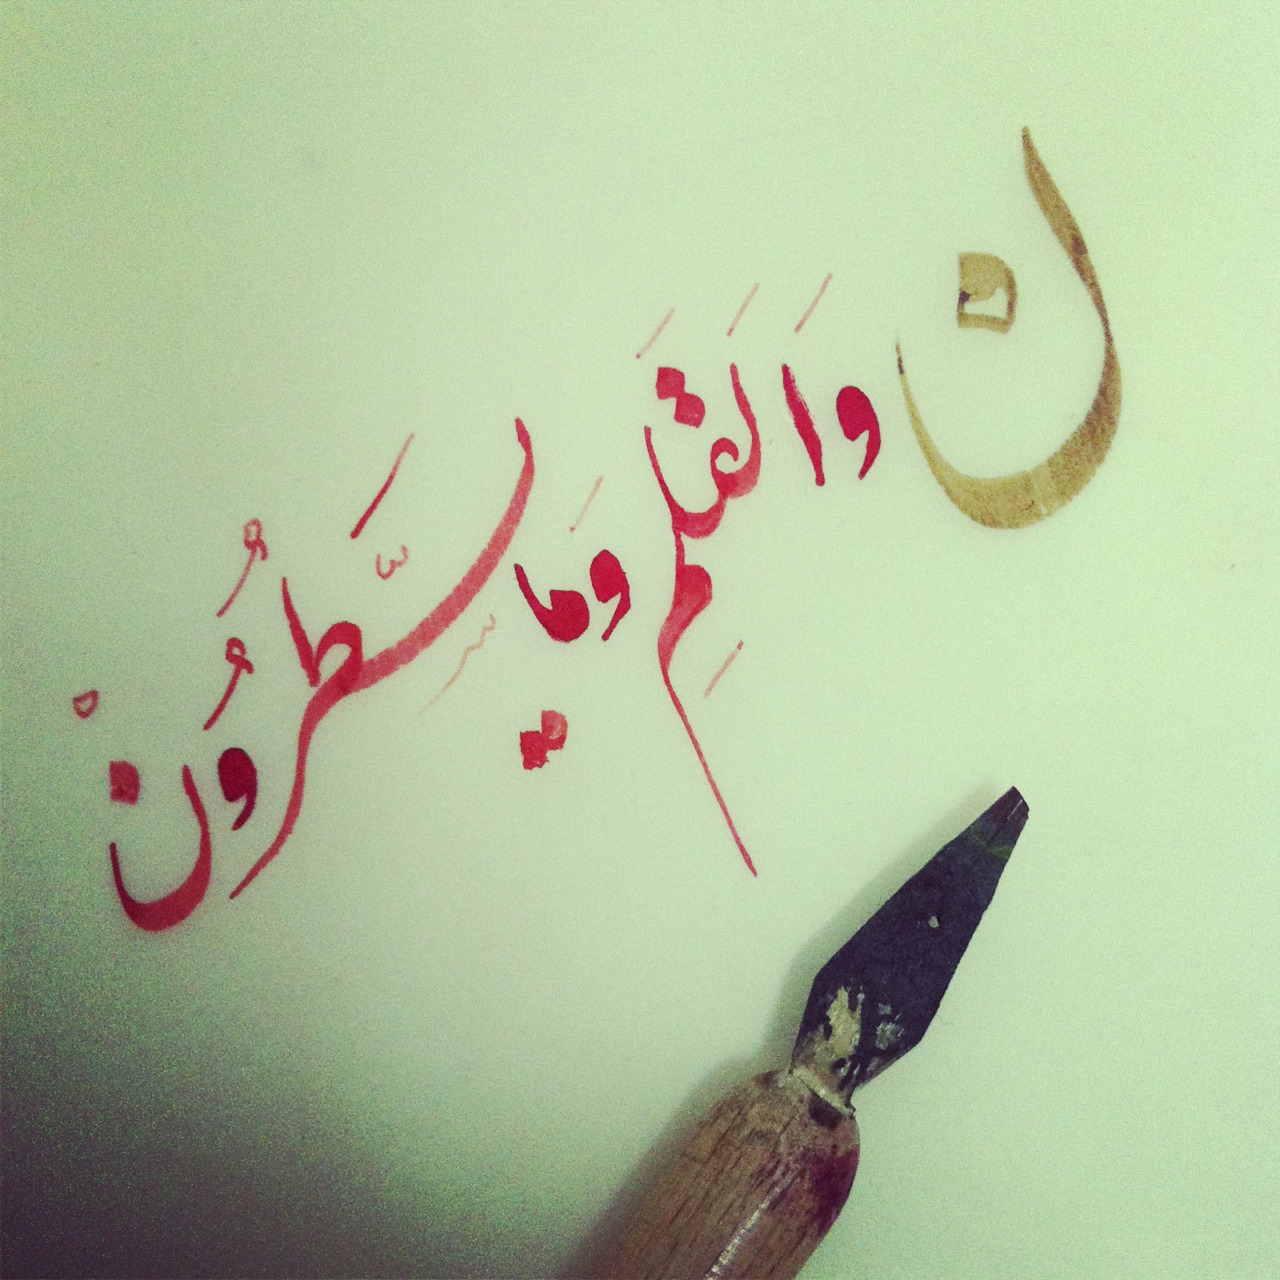 ن وَالَقَلَمِ وَمَا يَسَّطُرُونْ